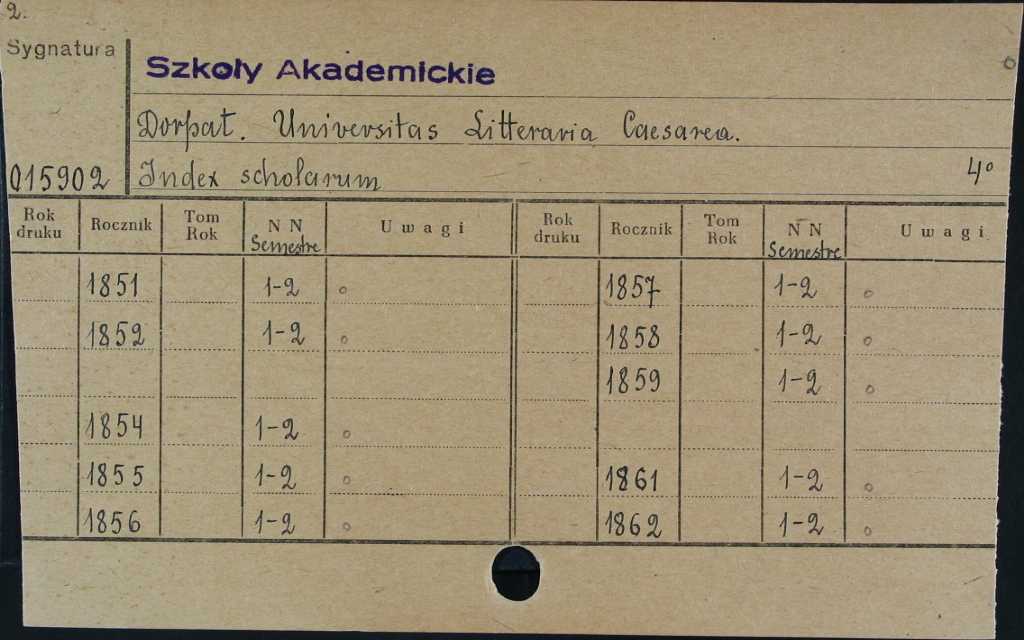 2.
Sygnatura
Szkoły Akademickie
Dorpat. Universitas Litteraria Caesarea.
015902 Index scholarum 4°
Rok druku Rocznik Tom Rok N N Semestre Uwagi Rok druku Rocznik Tom Rok N N Semestre Uwagi
1851 1-2 o 1857 1-2 o
1852 1-2 o 1858 1-2 o
1859 1-2 o
1854 1-2 o
1855 1-2 o 1861 1-2 o
1856 1-2 o 1862 1-2 o